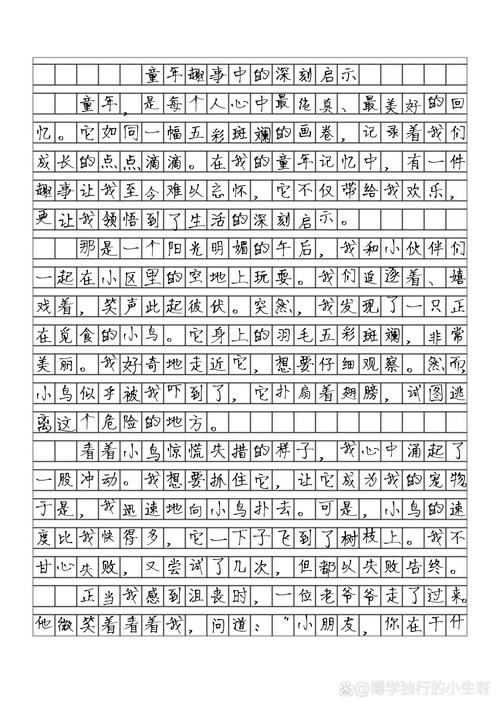 童年趣事中的深刻启示
童年，是每个人心中最纯真、最美好的回
忆。它如同一幅五彩斑斓的画卷，记录着我们
成长的点点滴滴。在我的童年记忆中，有一件
趣事让我至今难以忘怀，它不仅带给我欢乐，
更让我领悟到了生活的深刻启示。
那是一个阳光明媚的午后，我和小伙伴们
一起在小区里的空地上玩耍。我们追逐着、嬉
戏着，笑声此起彼伏。突然，我发现了一只正
在觅食的小鸟。它身上的羽毛五彩斑斓，非常
美丽。我好奇地走近它，想要仔细观察。然而，
小鸟似乎被我吓到了，它扑扇着翅膀，试图逃
离这个危险的地方。
看着小鸟惊慌失措的样子，我心中涌起了
一股冲动。我想要抓住它，让它成为我的宠物
于是，我迅速地向小鸟扑去。可是，小鸟的速
度比我快得多，它一下子飞到了树枝上。我不
甘心失败，又尝试了几次，但都以失败告终。
正当我感到沮丧时，一位老爷爷走了过来。
他微笑着看着我，问道：“小朋友，你在干什
知乎 @博学独行的小生呀